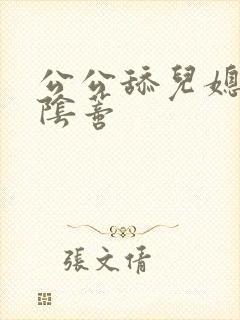 公公舔兒媳
陰蒂
張文倩